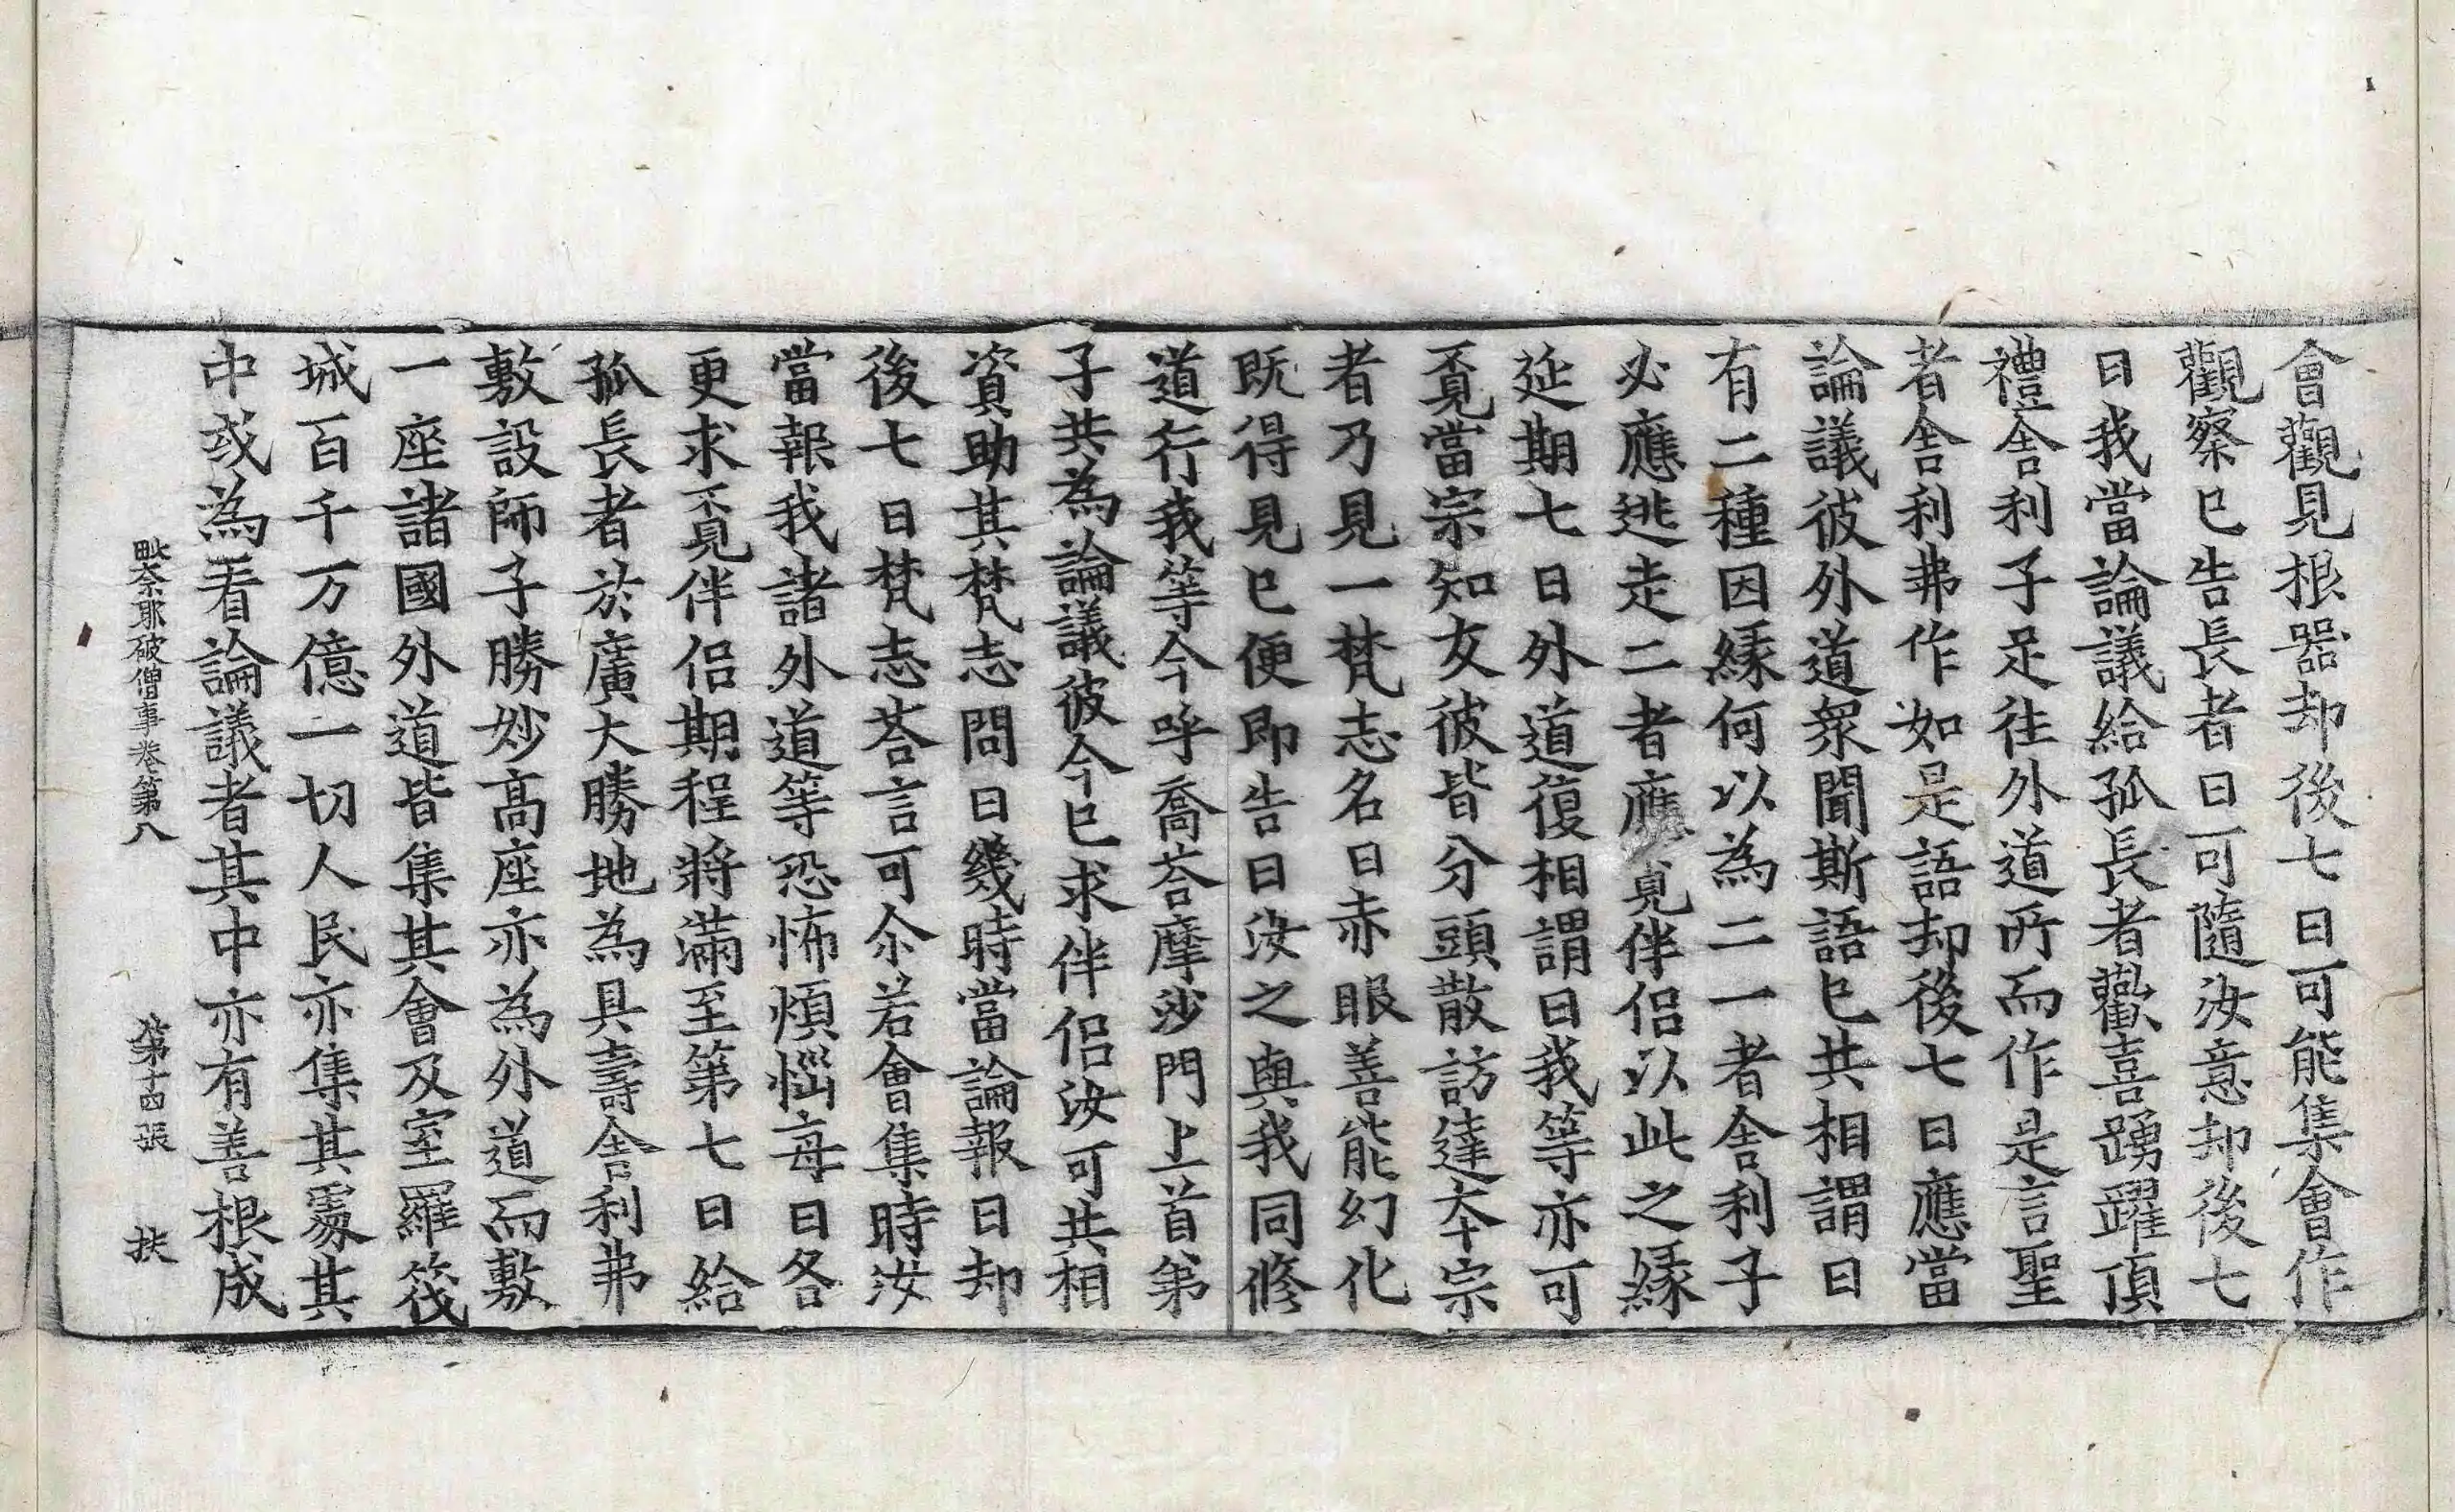 會觀見根器却後七日可能集會作
觀察已告長者曰可隨汝意却後七
日我當論議給孤長者歡喜踴躍頂
禮舍利子足往外道所而作是言聖
者舍利弗作如是語却後七日應當
論議彼外道衆聞斯語已共相謂曰
有二種因緣何以為二一者舍利子
必應逃走二者應覓伴侶以此之緣
延期七日外道復相謂曰我等亦可
覔當宗知友彼皆分頭散訪達夲宗
者乃見一梵志名曰赤眼善能幻化
既得見已便即告曰汝之與我同修
道行我等今呼喬荅摩沙門上首弟
子共為論議彼今已求伴侶汝可共相
資助其梵志問曰幾時當論報曰却
後七日梵志荅言可尒若會集時汝
當報我諸外道等恐怖煩惱每日各
更求覔伴侶期程將滿至第七日給
孤長者於廣大勝地為具壽舍利弗
敷設師子勝妙高座亦為外道而敷
一座諸國外道皆集其會及室羅筏
城百千万億一切人民亦集其處其
中或為看論議者其中亦有善根成
毗奈耶破僧事卷第八 第十四張 扶